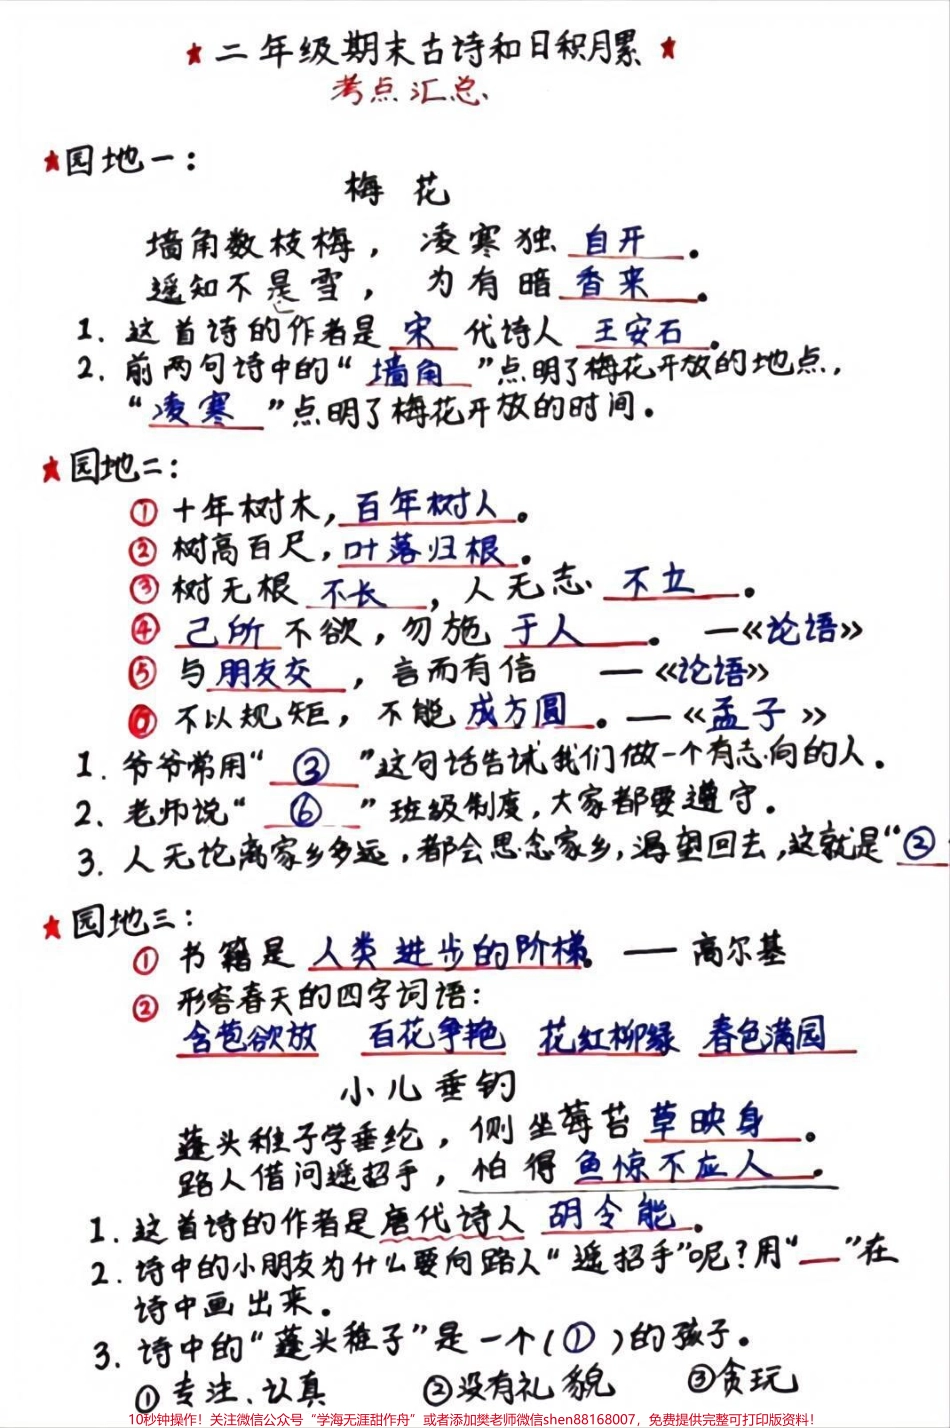 ★二年级期末古诗和日积月累★
考点汇总
★园地一:
梅花
墙角数枝梅,凌寒独自开。
遥知不是雪,为有暗香来。
1. 这首诗的作者是宋代诗人王安石。
2. 前两句诗中的“墙角”点明了梅花开放的地点,
“凌寒”点明了梅花开放的时间。
★园地二:
①十年树木,百年树人。
②树高百尺,叶落归根。
③树无根不长,人无志不立。
④己所不欲,勿施于人。—《论语》
⑤与朋友交,言而有信 —《论语》
⑥不以规矩,不能成方圆。—《孟子》
1. 爷爷常用“③”这句话告诫我们做一个有志向的人。
2. 老师说“⑥”班级制度,大家都要遵守。
3. 人无论离家乡多远,都会思念家乡,渴望回去,这就是“②
★园地三:
①书籍是人类进步的阶梯。—高尔基
②形容春天的四字词语:
含苞欲放 百花争艳 花红柳绿 春色满园
小儿垂钓
蓬头稚子学垂纶,侧坐莓苔草映身。
路人借问遥招手,怕得鱼惊不应人。
1. 这首诗的作者是唐代诗人胡令能。
2. 诗中的小朋友为什么要向路人“遥招手”呢?用“__”在
诗中画出来。
3. 诗中的“蓬头稚子”是一个(①)的孩子。
①专注、认真 ②没有礼貌 ③贪玩
10秒钟操作!关注微信公众号“学海无涯甜作舟”或者添加樊老师微信shen88168007,免费提供完整可打印版资料!